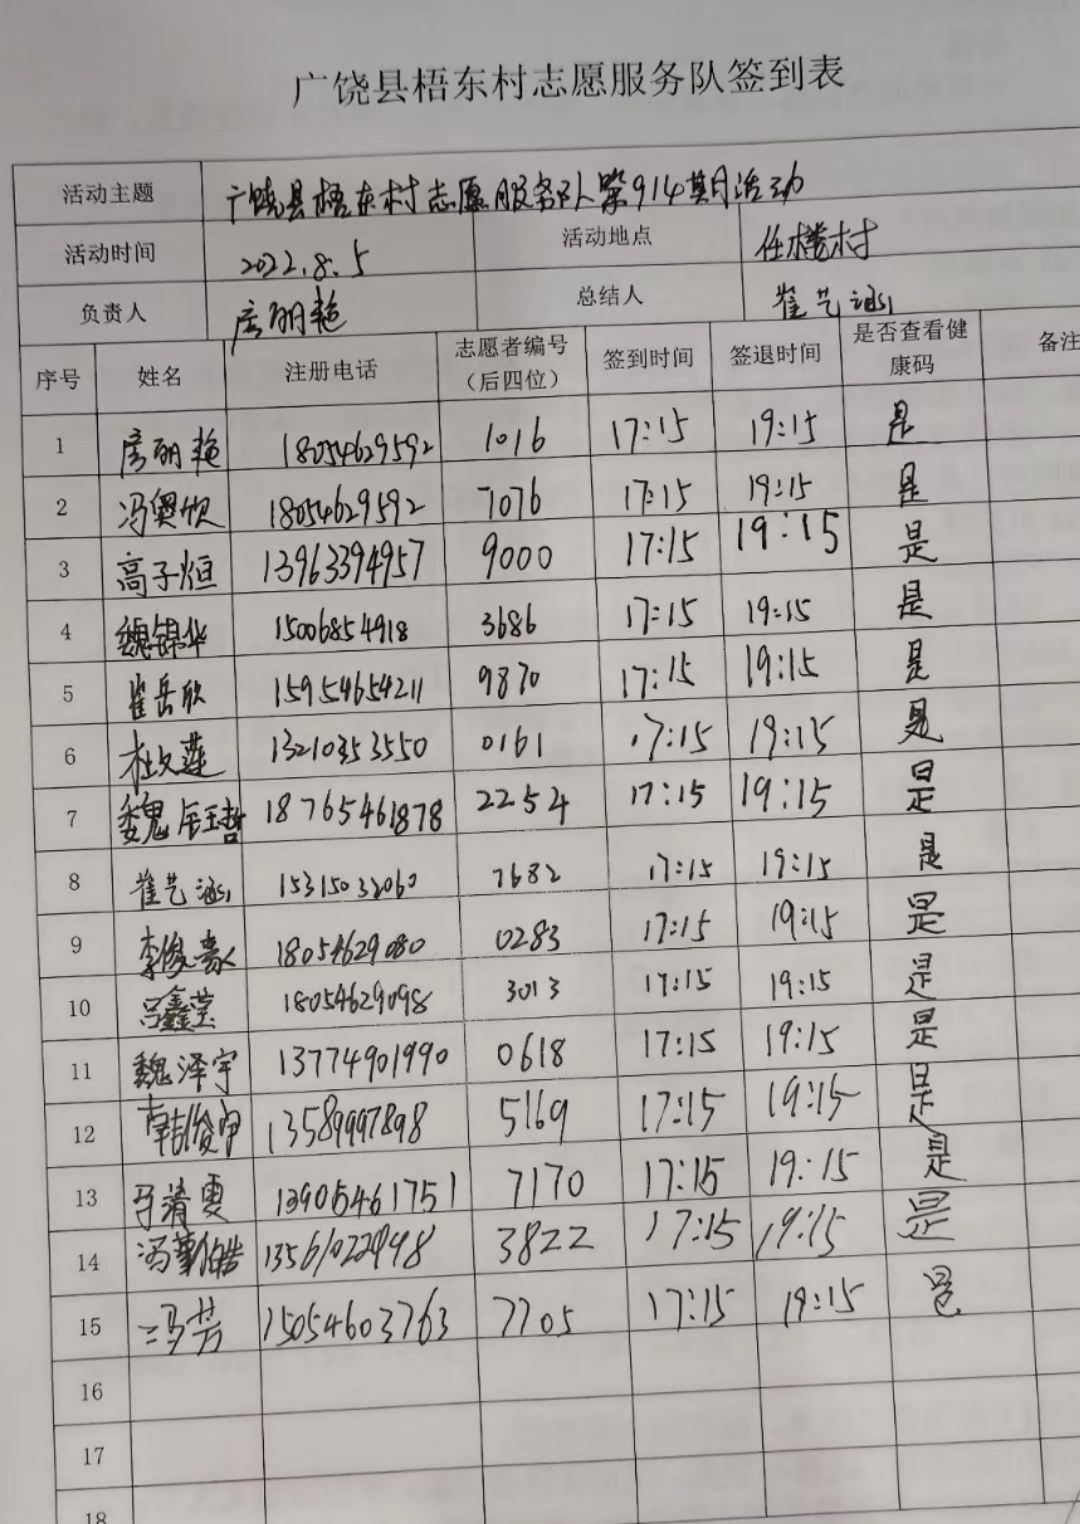 广饶县梧东村志愿服务队签到表
活动主题 广饶县梧东村志愿服务队第914期活动
活动时间 2022.8.5 活动地点 任楼村
负责人 房明艳 总结人 崔艺涵
序号 姓名 注册电话 志愿者编号（后四位） 签到时间 签退时间 是否查看健康码 备注
1 房明艳 18054629592 1016 17:15 19:15 是
2 冯奥欣 18054629592 7076 17:15 19:15 是
3 高子恒 13963394957 9000 17:15 19:15 是
4 魏锦华 15006854918 3686 17:15 19:15 是
5 崔岳欣 15954654211 9870 17:15 19:15 是
6 杜文莲 13210353550 0161 17:15 19:15 是
7 魏辰哲 18765461878 2254 17:15 19:15 是
8 崔艺涵 15315032060 7682 17:15 19:15 是
9 李俊豪 18054629080 0283 17:15 19:15 是
10 吕鑫莹 18054629098 3013 17:15 19:15 是
11 魏泽宇 13774901990 0618 17:15 19:15 是
12 韩俊 13589997898 5169 17:15 19:15 是
13 马清雯 13905461751 7170 17:15 19:15 是
14 冯 皓 13561022948 3822 17:15 19:15 是
15 冯芳 15054603763 7705 17:15 19:15 是
16
17
18